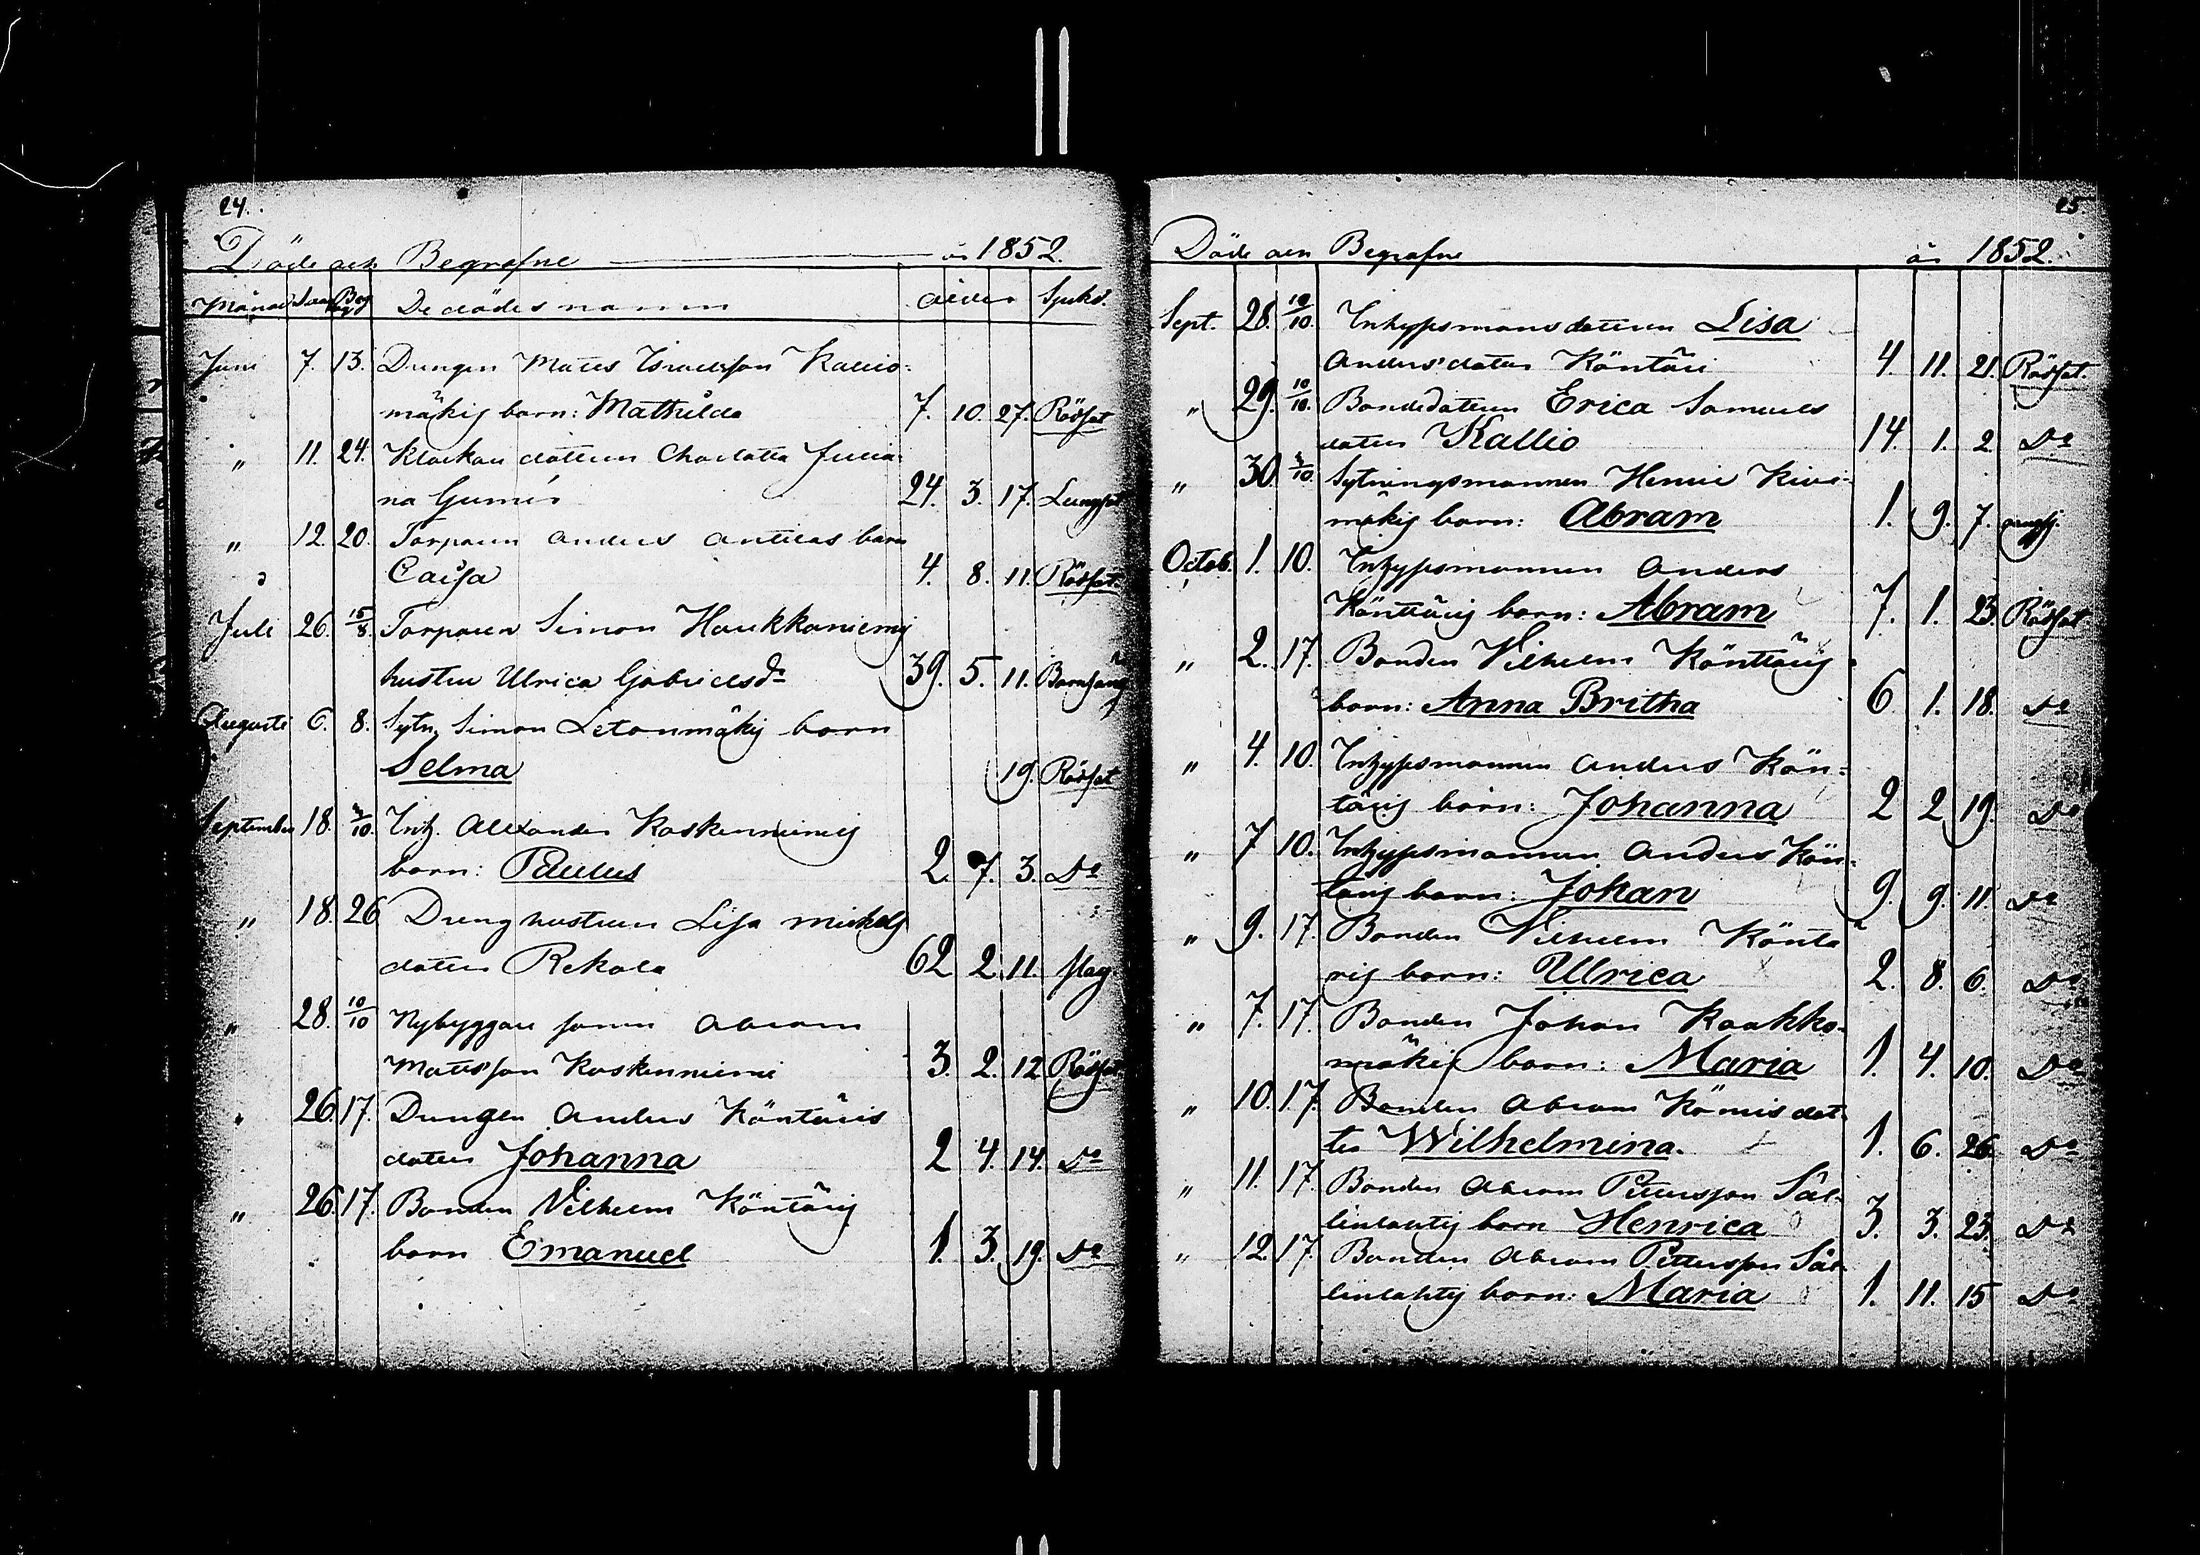 24.
Döde och Begrafne år 1852.
Månad Död Beg De dödes namn ålder Sjukd.
Juni 7. 13. Drängen Matts Israelsson Kallio-
mäkis barn: Mathilda 7. 10. 27. Rödsot
" 11. 24. Klockare dottren Charlotta Julia-
na 24. 3. 17. Lungsot
" 12. 20. Torparen Anders Anttilas barn
Caisa 4. 8. 11. Rödsot
Juli 26. 15/8 Torparen Simon Haukkaniemis
hustru Ulrica Gabrielsdr 39. 5. 11. Barnsäng
Augusti 6. 8. Sytn. Simon Letonmäkis barn
Selma 19. Rödsot
September 18. 3/10. Inh. Alexander Koskenniemis
barn: Paulus 2. 7. 3. Do
" 18. 26 Dräng hustrun Lisa Mickels
dotter Rekola 62 2. 11. slag
" 28. 10/10 Nybyggare sonen Abram
Mattsson Koskenniemi 3. 2. 12 Rödsot
" 26. 17. Drängen Anders Köntäris
dotter Johanna 2 4. 14. Do
" 26. 17. Bonden Vilhelm Köntäris
barn Emanuel 1. 3. 19. Do
25.
Döde och Begrafne år 1852.
Sept. 28. 10/10. Inhysesmans dottren Lisa
Anders dotter Köntäri 4. 11. 21. Rödsot.
" 29. 10/10. Bondedottren Erica Samuels
dotter Kallio 14. 1. 2. Do
" 30. 3/10. Sytningsmannen Henric Kivi-
mäkis barn: Abram 1. 9. 7.
Octob. 1. 10. Inhysesmannen Anders
Könttäris barn: Abram 7. 1. 23. Rödsot
" 2. 17. Bonden Vilhelm Könttäris
barn: Anna Britha 6 1. 18. Do
" 4. 10. Inhysesmannen Anders Kön-
täris barn: Johanna 2 2 19. Do
" 7 10. Inhysesmannen Anders Kön-
täris barn: Johan 9. 9. 11. Do
" 9. 17. Bonden Vilhelm Köntä
ris barn: Ulrica 2. 8. 6. Do
" 7. 17. Bonden Johan Kaakko-
mäkis barn: Maria 1. 4. 10. Do
" 10. 17. Bonden Abram Kömis dot-
ter Wilhelmina. 1. 6. 26. Do
" 11. 17. Bonden Abram Pettersson Säi-
linlahtis barn Henrica 3. 3. 23. Do
" 12. 17. Bonden Abram Pettersson Säi-
linlahtis barn: Maria 1. 11. 15 Do